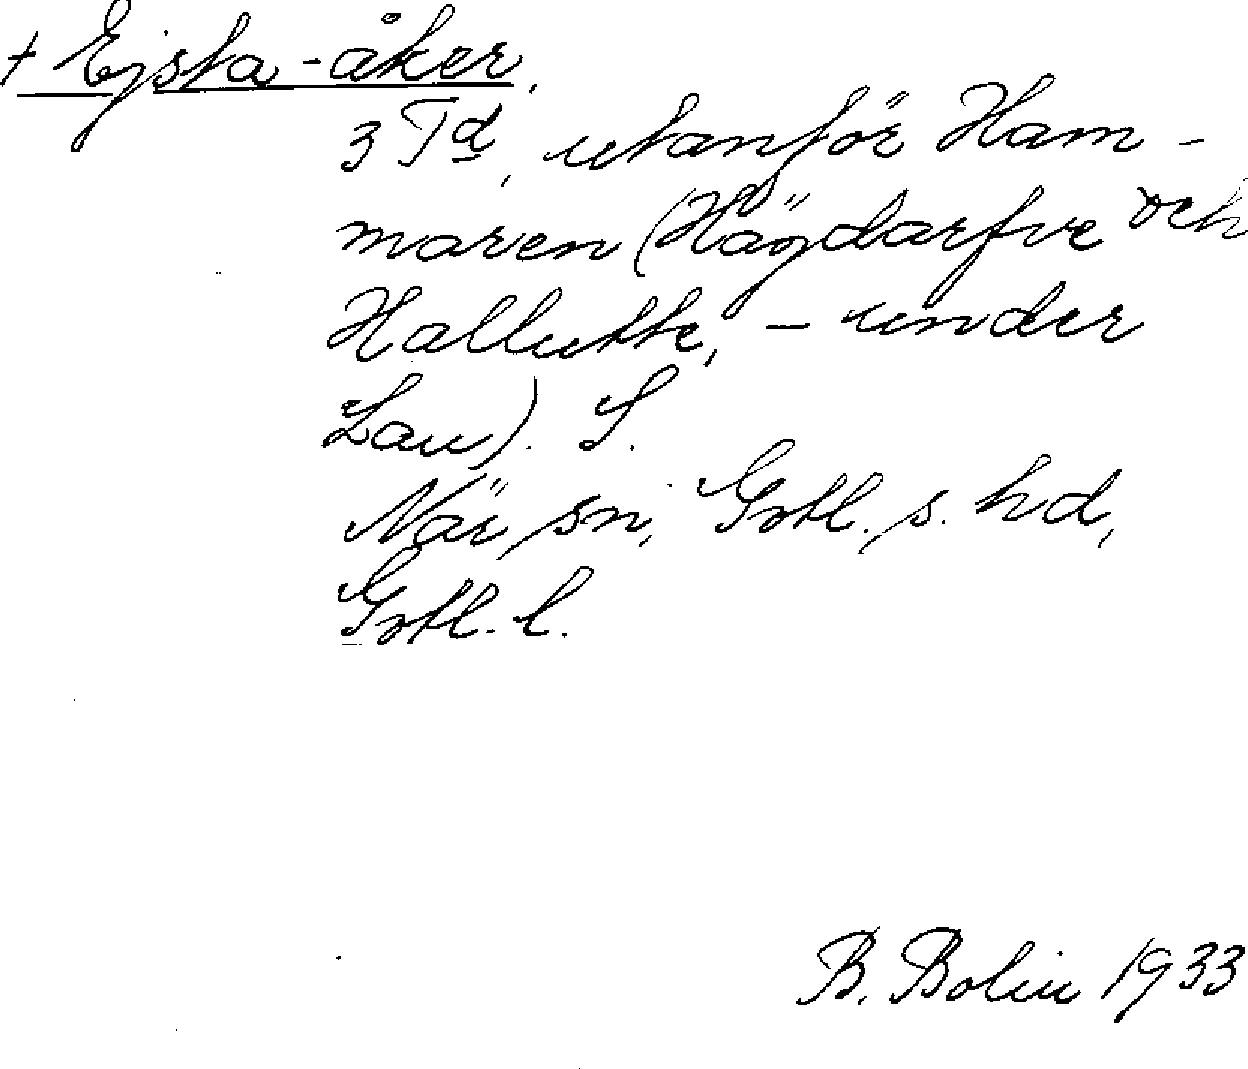 + Ejsta-åker.
3 Td, utanför Ham-
maren (Hägdarfve och
Hallutte, - under
Lau). S.
När sn, Gotl. s. hd,
Gotl. l.
B. Bolin 1933